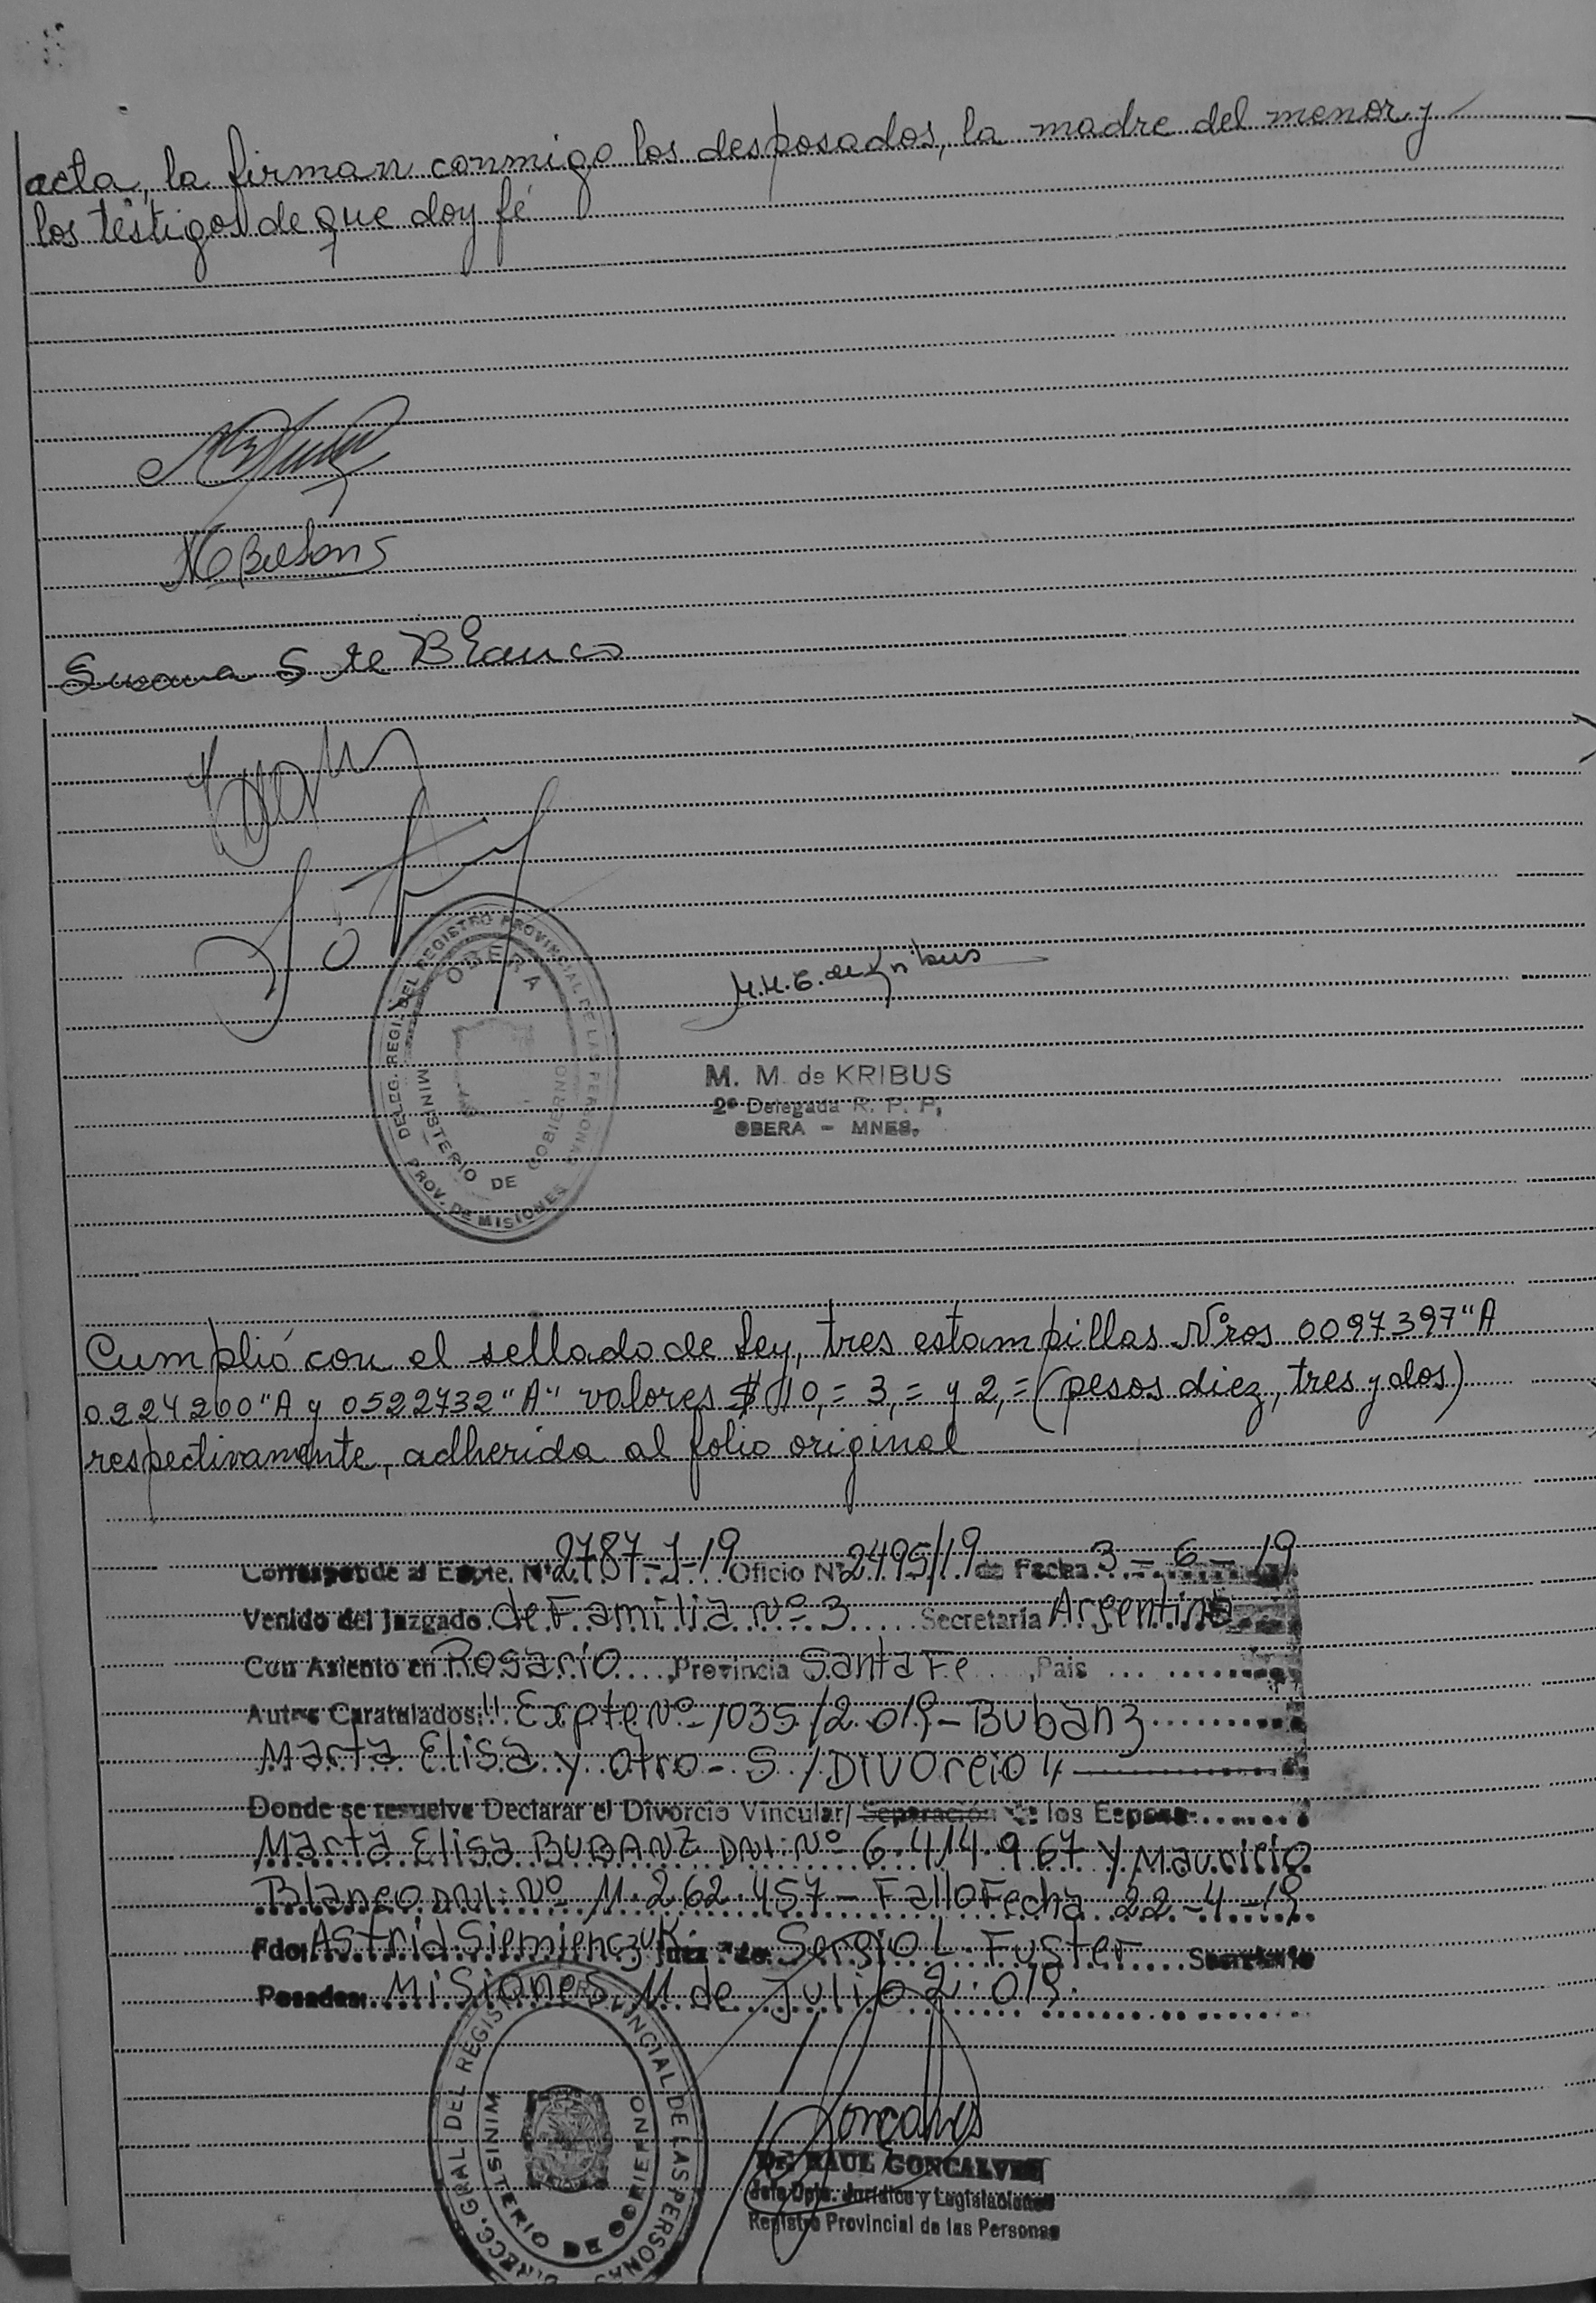 acta, la firman conmigo los desposados, la madre del menor y
los testigos de que doy fé
Susana S de Blanco
DELEG. REGI. DEL REGISTRO PROVINCIAL DE LAS PERSONAS
OBERA
MINISTERIO DE GOBIERNO
PROV. DE MISIONES
M.M.G. de Kribus
M. M. de KRIBUS
2º Delegada R. P. P,
OBERA - MNES.
Cumplió con el sellado de Ley, tres estampillas Nºros 0097397"A
0224260"A y 0522732"A" valores $ 10,= 3,= y 2,= (pesos diez, tres y dos)
respectivamente, adherida al folio original
Corresponde al Expte. Nº 2787-J-19 Oficio Nº 2495/19 de Fecha 3-6-19
Venido del Juzgado de Familia Nº 3 Secretaría Argentina
Con Asiento en Rosario, Provincia Santa Fe, Pais
Autos Caratulados: "Expte Nº 1035/2.019-Bubanz
Marta Elisa y Otro-S/Divorcio"
Donde se resuelve Declarar el Divorcio Vincular/ Separación de los Esposos
Marta Elisa BUBANZ DNI: Nº 6.414.967 y Mauricio
Blanco DNI: Nº 11.262.457-Fallo Fecha 22-4-19
Fdo: Astrid Siemienczuk Juez Fdo. Sergio L. Fuster Secretario
Posadas: Misiones, 11 de Julio 2.019.
DIRECC. GRAL DEL REGISTRO PROVINCIAL DE LAS PERSONAS
MINISTERIO DE GOBIERNO
Goncalves
Dr. RAUL GONCALVES
Jefe Dpto. Jurídico y Legislaciones
Registro Provincial de las Personas